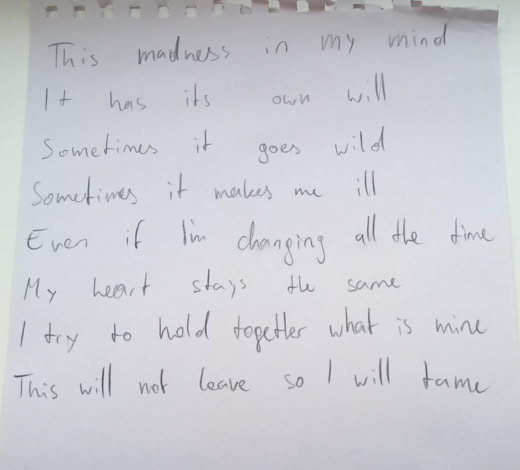 This madness in my mind
It has its own will
Sometimes it goes wild
Sometimes it makes me ill
Even if I'm changing all the time
My heart stays the same
I try to hold together what is mine
This will not leave so I will tame